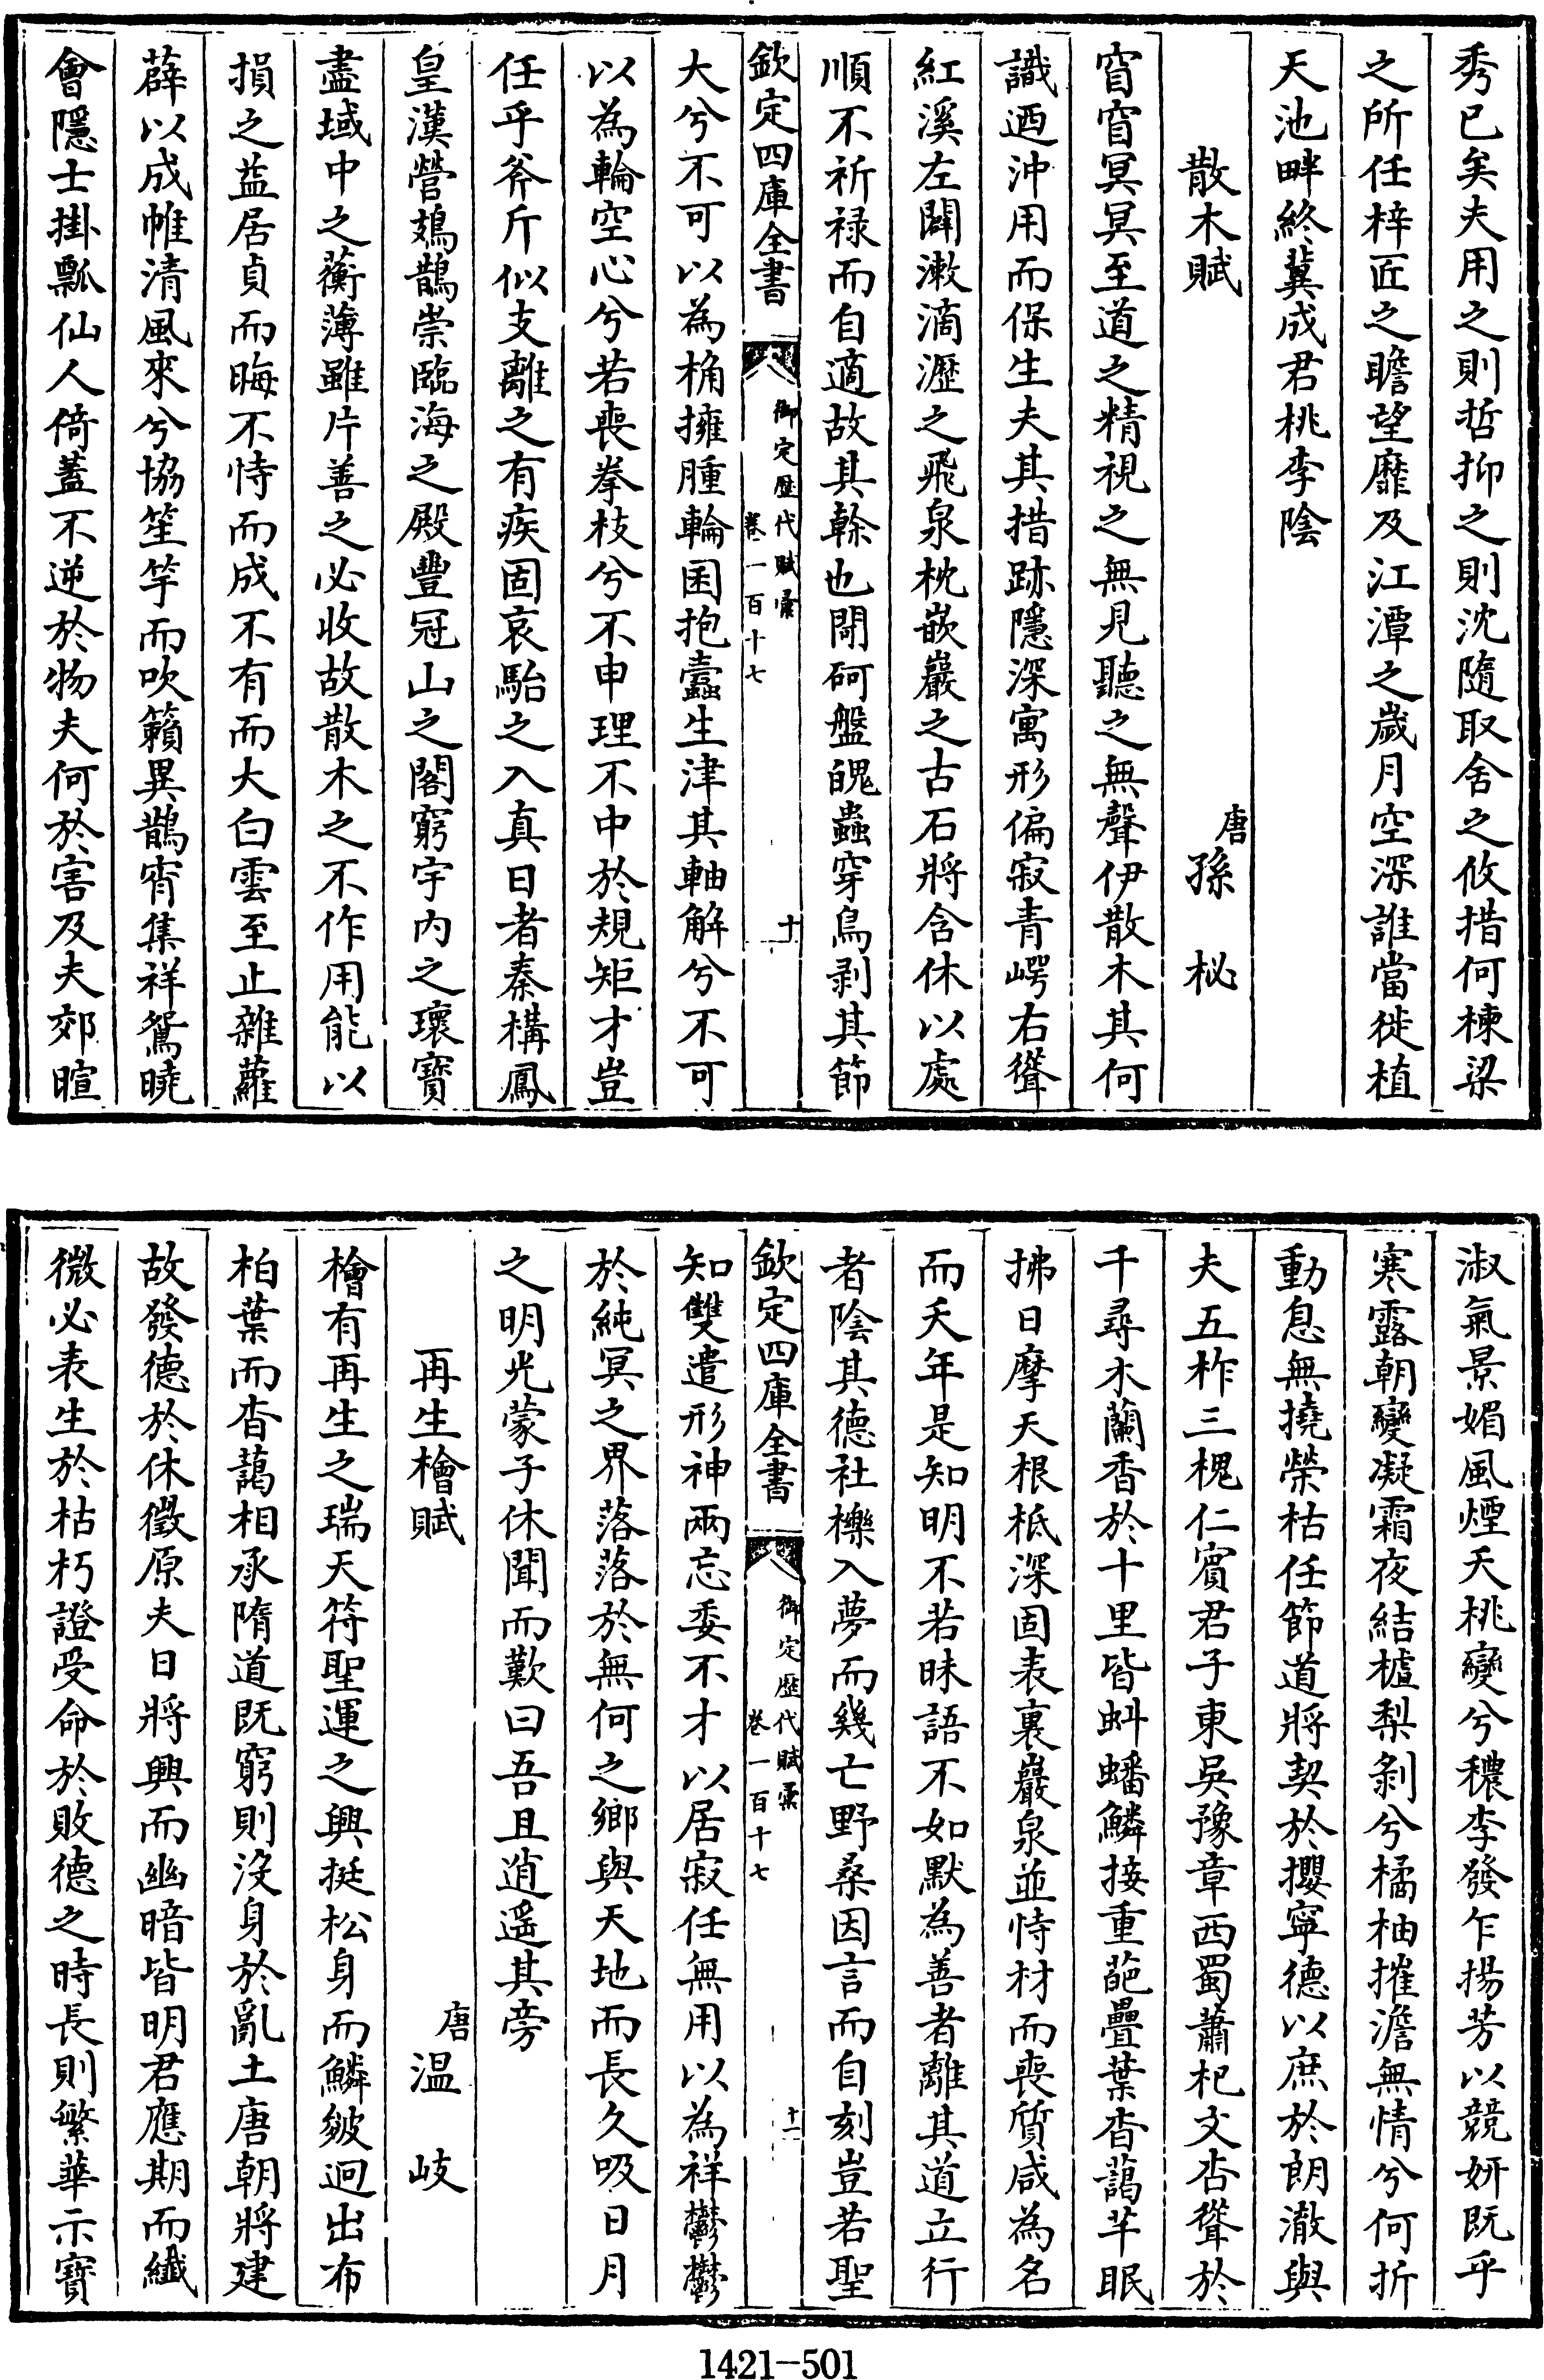 秀已矣夫用之則哲抑之則沈隨取舍之攸措何棟梁
之所任梓匠之瞻望靡及江潭之歲月空深誰當徙植
天池畔終冀成君桃李陰
散木賦
唐孫柲
窅窅冥冥至道之精視之無見聽之無聲伊散木其何
識迺沖用而保生夫其措跡隱深寓形偏寂青崿右聳
紅溪左闢漱滴瀝之飛泉枕嵌巖之古石將含休以處
順不祈祿而自適故其榦也閜砢盤磈蟲穿鳥剥其節
欽定四庫全書
御定歷代賦彙
卷一百十七
十
大兮不可以為桷擁腫輪囷抱蠹生津其軸解兮不可
以為輪空心兮若喪拳枝兮不申理不中於規矩才豈
任乎斧斤似支離之有疾固哀駘之入真日者秦構鳳
皇漢營鳷鵲崇臨海之殿豐冠山之閣窮宇內之瓌寶
盡域中之蘅薄雖片善之必收故散木之不作用能以
損之益居貞而晦不恃而成不有而大白雲至止雜蘿
薜以成帷清風來兮協笙竽而吹籟異鵲宵集祥鴛曉
會隱士掛瓢仙人倚蓋不逆於物夫何於害及夫郊暄
淑氣景媚風煙夭桃變兮穠李發乍揚芳以競妍既乎
寒露朝變凝霜夜結樝梨剝兮橘柚摧澹無情兮何折
動息無撓榮枯任節道將契於攖寧德以庶於朗澈與
夫五柞三槐仁賓君子東吳豫章西蜀蕭杞文杏聳於
千尋木蘭香於十里皆虯蟠鱗接重葩疊葉杳藹芊眠
拂日摩天根柢深固表裏巖泉並恃材而喪質咸為名
而夭年是知明不若昧語不如默為善者離其道立行
者陰其德社櫟入夢而幾亡野桑因言而自刻豈若聖
欽定四庫全書
御定歷代賦彙
卷一百十七
十一
知雙遣形神兩忘委不才以居寂任無用以為祥鬱鬱
於純冥之界落落於無何之鄉與天地而長久吸日月
之明光蒙子休聞而歎曰吾且逍遥其旁
再生檜賦
唐温岐
檜有再生之瑞天符聖運之興挺松身而鱗皴迥出布
柏葉而杳藹相承隋道既窮則沒身於亂土唐朝將建
故發德於休徵原夫日將興而幽暗皆明君應期而纖
微必表生於枯朽證受命於敗德之時長則繁華示寶
1421-501